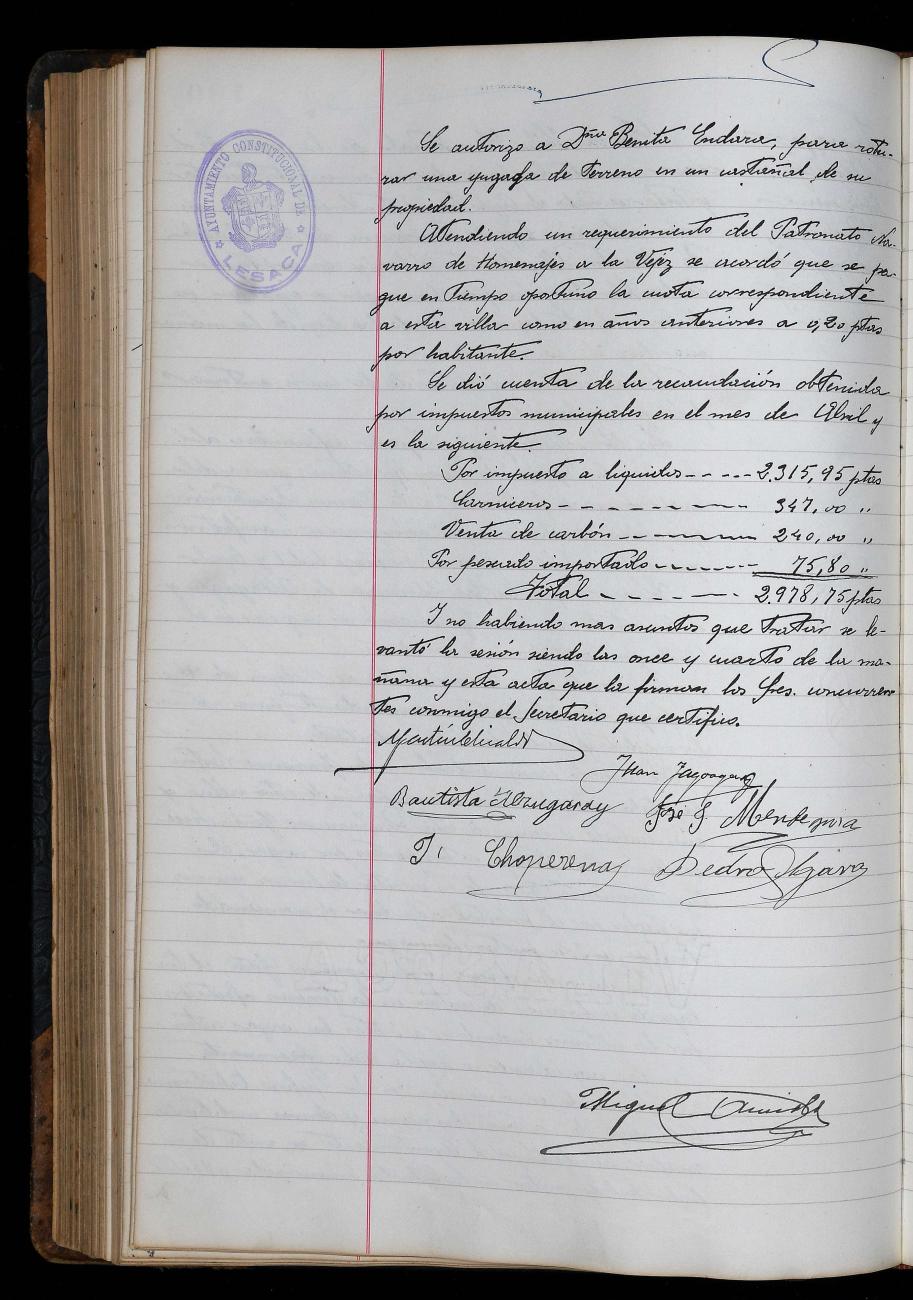 AYUNTAMIENTO CONSTITUCIONAL DE
LESACA
Se autorizo a Dña Benita Endara, para rotu-
rar una yugada de terreno en un castañal de su
propiedad.
Atendiendo un requerimiento del Patronato Na-
varro de Homenajes a la Vejez se acordó que se pa-
gue en tiempo oportuno la cuota correspondiente
a esta villa como en años anteriores a 0,20 ptas
por habitante.
Se dió cuenta de la recaudación obtenida
por impuestos municipales en el mes de Abril y
es la siguiente.
Por impuesto a liquidos - - - - 2.315,95 ptas
Carniceros - - - - - - - - 347,00 "
Venta de carbón - - - - - - 240,00 "
Por pescado importado - - - - - 75,80 "
Total - - - - - - 2.978,75 ptas
I no habiendo mas asuntos que tratar se le-
vantó la sesión siendo las once y cuarto de la ma-
ñana y esta acta que la firman los Sres. concurren
tes conmigo el Secretario que certifico.
Juan
Bautista José J.
Choperena Pedro
Miguel